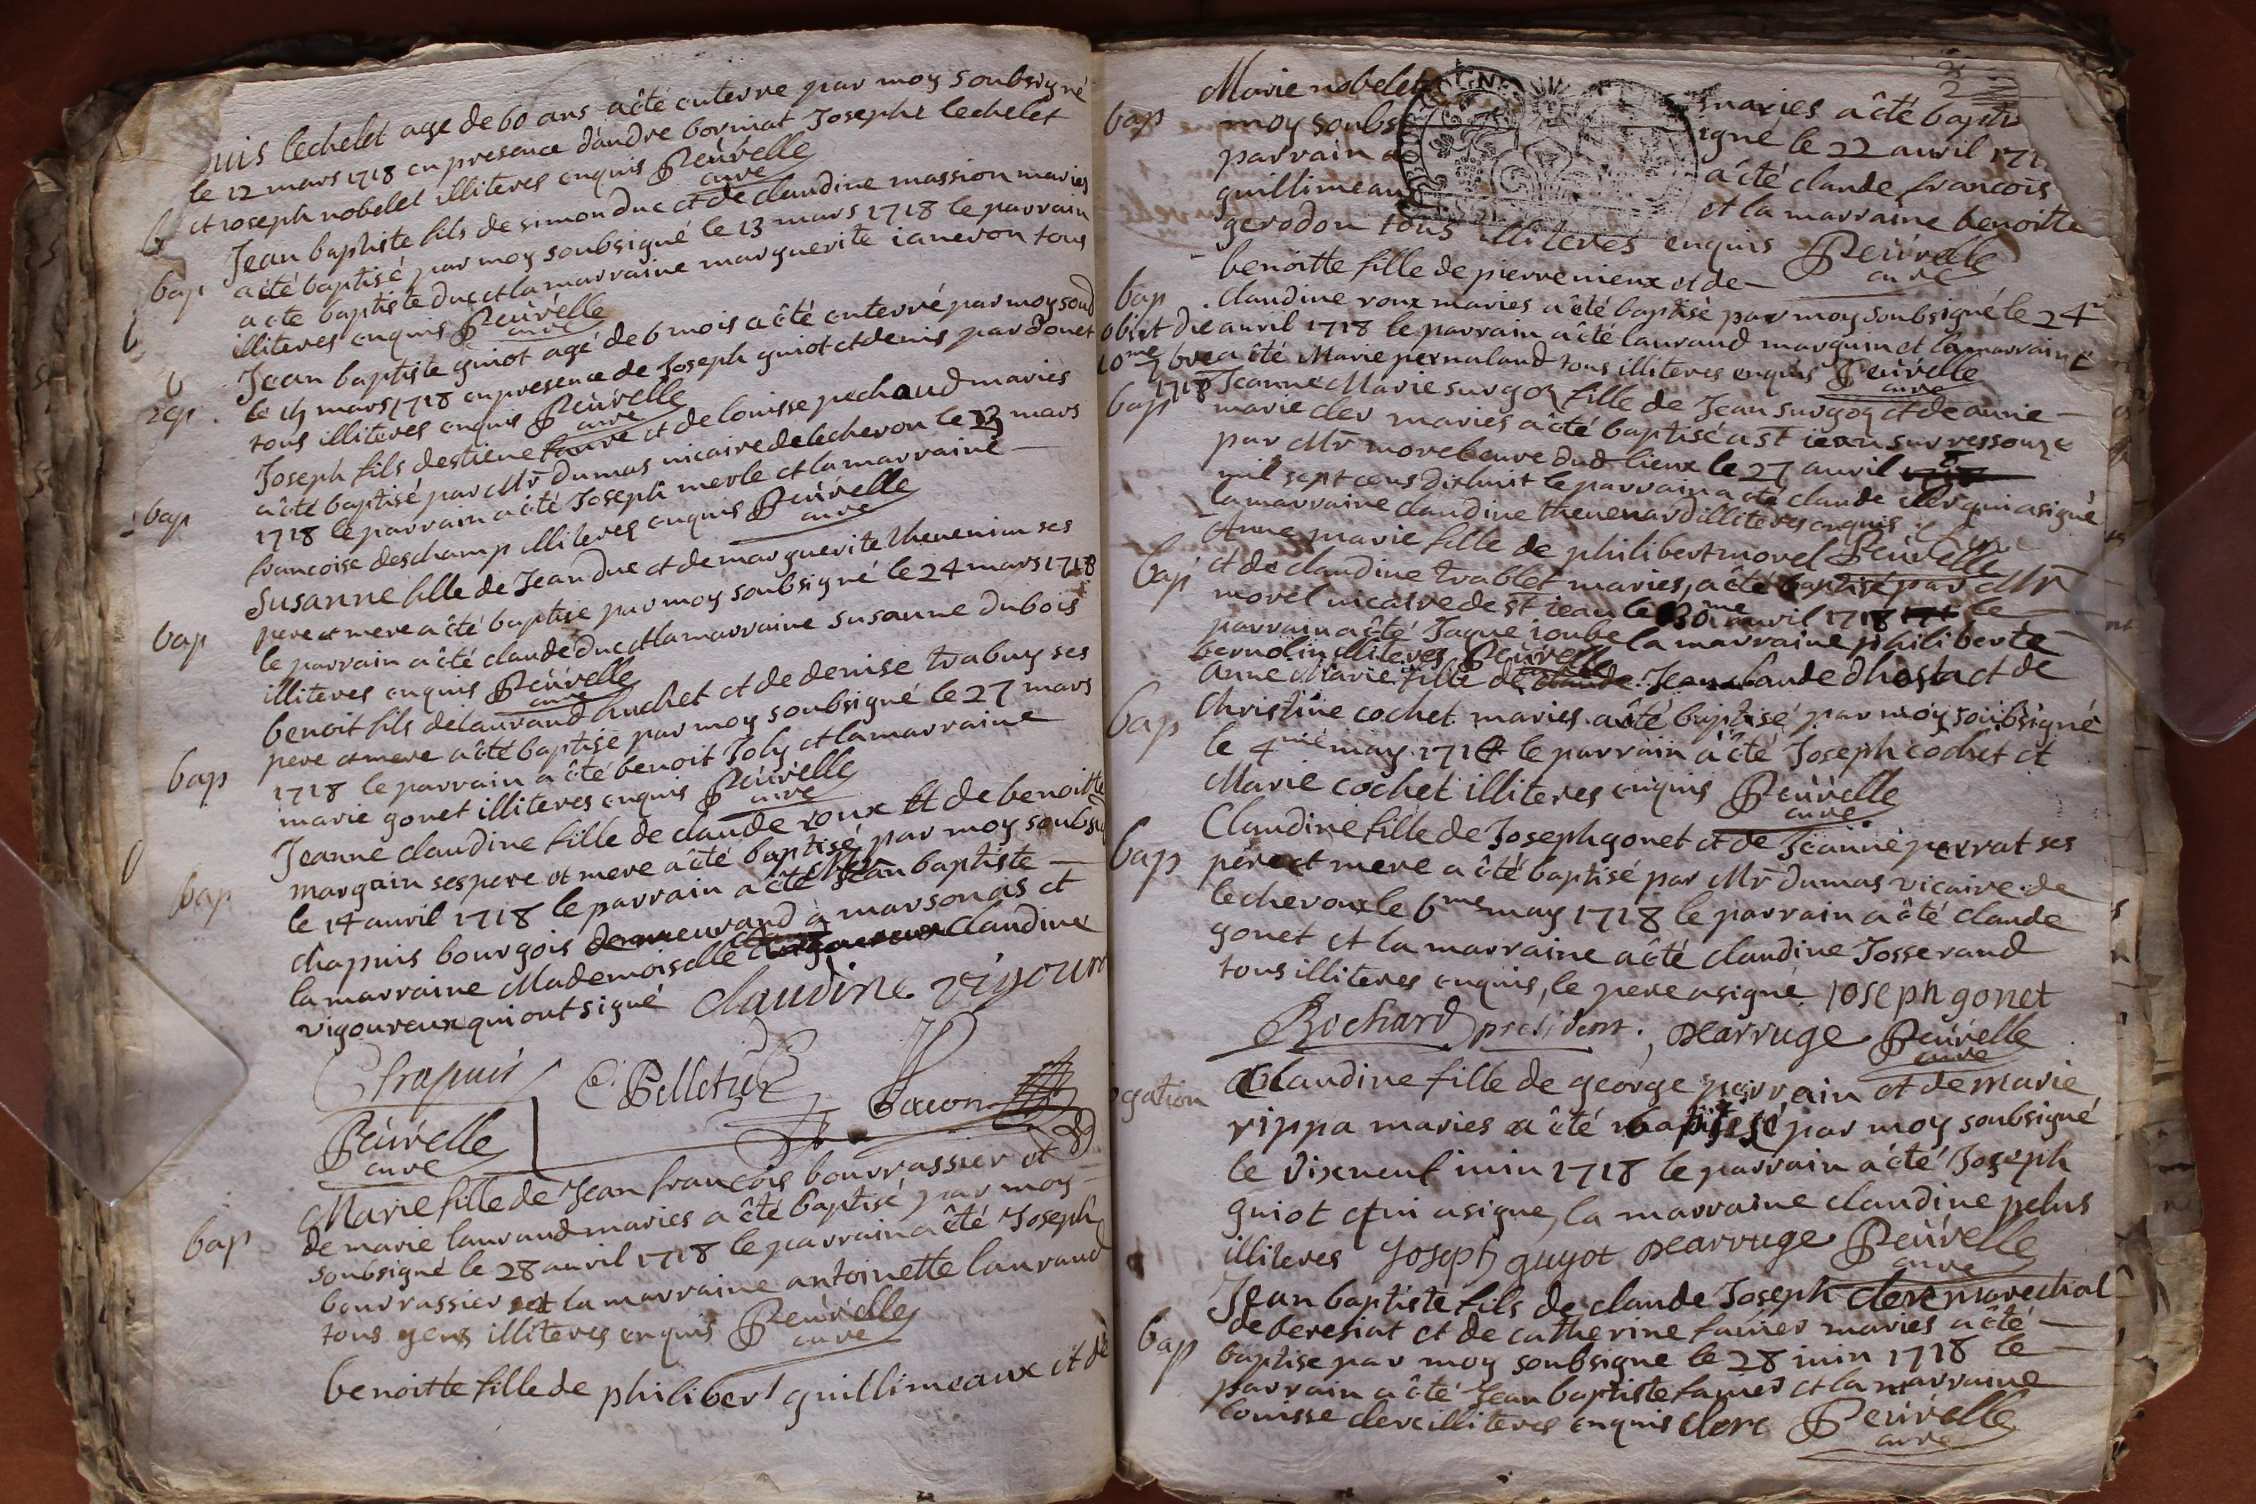 uis lechelet age de 60 ans a êté enterre par moy soubsigné
le 12 mars 1718 en presence d'andre borjon Josephe lechelet
et roseph nobelet illiteres enquis Peuvelle
curé
Jean baptiste fils de simon duc et de claudine massion maries
bap a êté baptisé par moy soubsigné le 13 mars 1718 le parrain
a eté baptiste duc et la marraine marguerite ianeron tous
illiteres enquis Peuvelle
cure
Jean baptiste guiot agé de 6 mois a êté enterré par moy soub
le 19 mars 1718 en presence de Joseph guiot et denis pardonet
tous illiteres enquis Peuvelle
cure
Joseph fils destiene favre et de louisse pechaud maries
bap a êté baptisé par Mr dumas vicaire de lecheron le 23 mars
1718 le parrain a êté Joseph merle et la marraine
francoise deschamp illiteres enquis Peuvelle
cure
Susanne fille de Jean duc et de marguerite thevenin ses
bap pere et mere a êté baptise par moy soubsigné le 24 mars 1718
le parrain a êté claude duc et la marraine susanne dubois
illiteres enquis Peuvelle
cure
benoit fils de laurand huchet et de denise trabuy ses
bap pere et mere a êté baptise par moy soubsigné le 27 mars
1718 le parrain a êté benoit Joly et la marraine
marie gonet illiteres enquis Peuvelle
cure
Jeanne claudine fille de claude roux et de benoitte
bap margain ses pere et mere a êté baptisé par moy soubsi
le 14 auril 1718 le parrain a êté Jean baptiste
chapuis bourgois demeurand à marsonas et
la marraine Mademoiselle claudine
vigoureux qui ont signé claudine vigour
Chapuis C. Pelletier Bacon
Peuvelle
cure
Marie fille de Jean francois bourrassier et
bap de marie laurand maries a êté baptisé par moy
soubsigné le 28 auril 1718 le parrain a êté Joseph
bourrassier et la marraine antoinette laurand
tous gens illiteres enquis Peuvelle
cure
benoitte fille de philibert guillimeaux et de
Marie nobelet maries a êté bapti
bap moy soubs igné le 22 auril 171
parrain a a êté claude francois
guillimeau et la marraine benoitte
gerodon tous illiteres enquis Peuvelle
cure
benoitte fille de pierre nieux et de
bap claudine roux maries a êté baptisé par moy soubsigné le 24
obiit die auril 1718 le parrain a êté laurand marguin et la marraine
10me 7bre a êté Marie pernaland tous illiteres enquis Peuvelle
1718 cure
Jeanne Marie surgoz fille de Jean surgoz et de anne
bap marie cler maries a êté baptisé a St iean sur ressouze
par Mr morel cure dud lieux le 27 auril
mil sept cens dixhuit le parrain a eté claude cler qui a signé
la marraine claudine thevenard illiteres enquis
Anne marie fille de philibert morel Peuvelle
bap et de claudine trablet maries, a êté baptisé par Mr
morel vicaire de st iean le 30me auril 1718 le
parrain a êté Jaque ioube la marraine philiberte
bernolin illiteres Peuvelle
Anne Marie fille de Jean claude dhosta et de
bap Christine cochet maries a êté baptisé par moy soubsigné
le 4me may 1718 le parrain a êté Joseph cochet et
Marie cochet illiteres enquis Peuvelle
cure
Claudine fille de Joseph gonet et de Jeanne perrat ses
bap pere et mere a êté baptisé par Mr dumas vicaire de
lecheroux le 6me may 1718 le parrain a êté claude
gonet et la marraine a êté claudine Josserand
tous illiteres enquis, le pere a signe Joseph gonet
Rochard president. Dearruge Peuvelle
cure
gation Claudine fille de george perrain et de marie
rippa maries a êté baptisé par moy soubsigné
le dixneuf iuin 1718 le parrain a êté Joseph
guiot qui a signe, la marraine claudine pelus
illiteres Joseph guyot Dearruge Peuvelle
cure
Jean baptiste fils de claude Joseph clerc marechal
de beresiat et de catherine famier maries a êté
bap baptise par moy soubsigne le 28 iuin 1718 le
parrain a êté Jean baptiste famier et la marraine
louisse clerc illiteres enquis clerc Peuvelle
cure